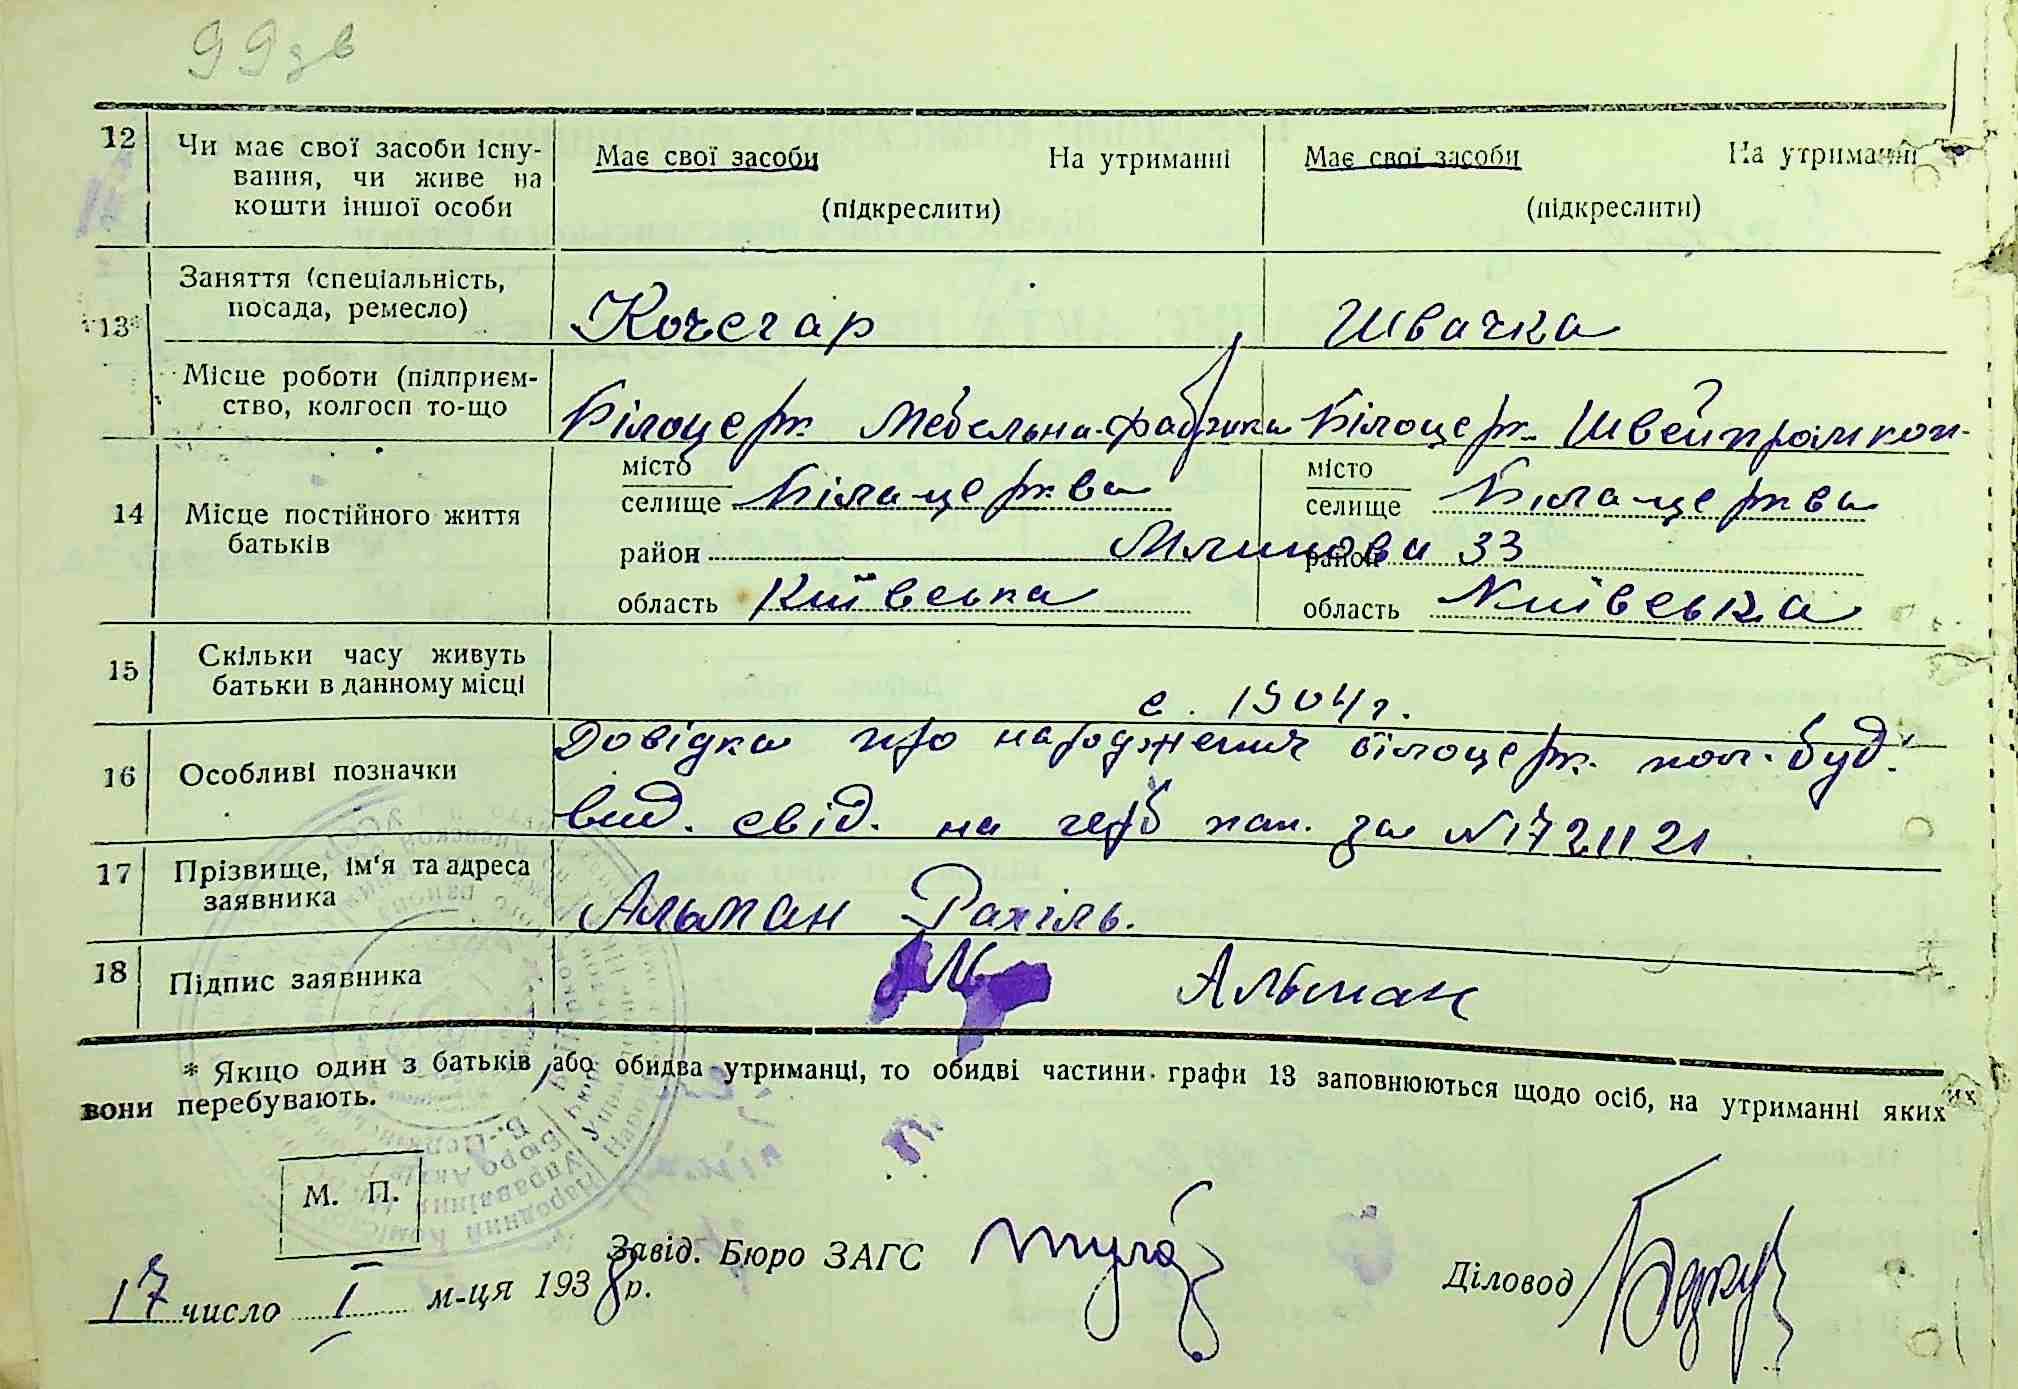 99зв
12 Чи має свої засоби існу-
вання, чи живе на
кошти іншої особи
Має свої засоби На утриманні
(підкреслити)
Має свої засоби На утриманні
(підкреслити)
13* Заняття (спеціальність,
посада, ремесло)
Кочегар
Швачка
Місце роботи (підприєм-
ство, колгосп то-що
Білоцерк. Мебельна фабрика
Білоцерк. Швейпромкоп-
14 Місце постійного життя
батьків
місто
селище Білацерква
район
область Київська
місто
селище Білацерква
район
область Київська
Млинова 33
15 Скільки часу живуть
батьки в данному місці
с. 1904 г.
16 Особливі позначки
Довідка про народження білоцерк. пол. буд.
вид. свід. на герб пап. за N 1721121
17 Прізвище, ім'я та адреса
заявника
Альман Рахіль.
18 Підпис заявника
Альман
* Якщо один з батьків або обидва утриманці, то обидві частини графи 13 заповнюються щодо осіб, на утриманні яких
вони перебувають.
М. П.
17 число I м-ця 1938 р.
Завід. Бюро ЗАГС
Діловод